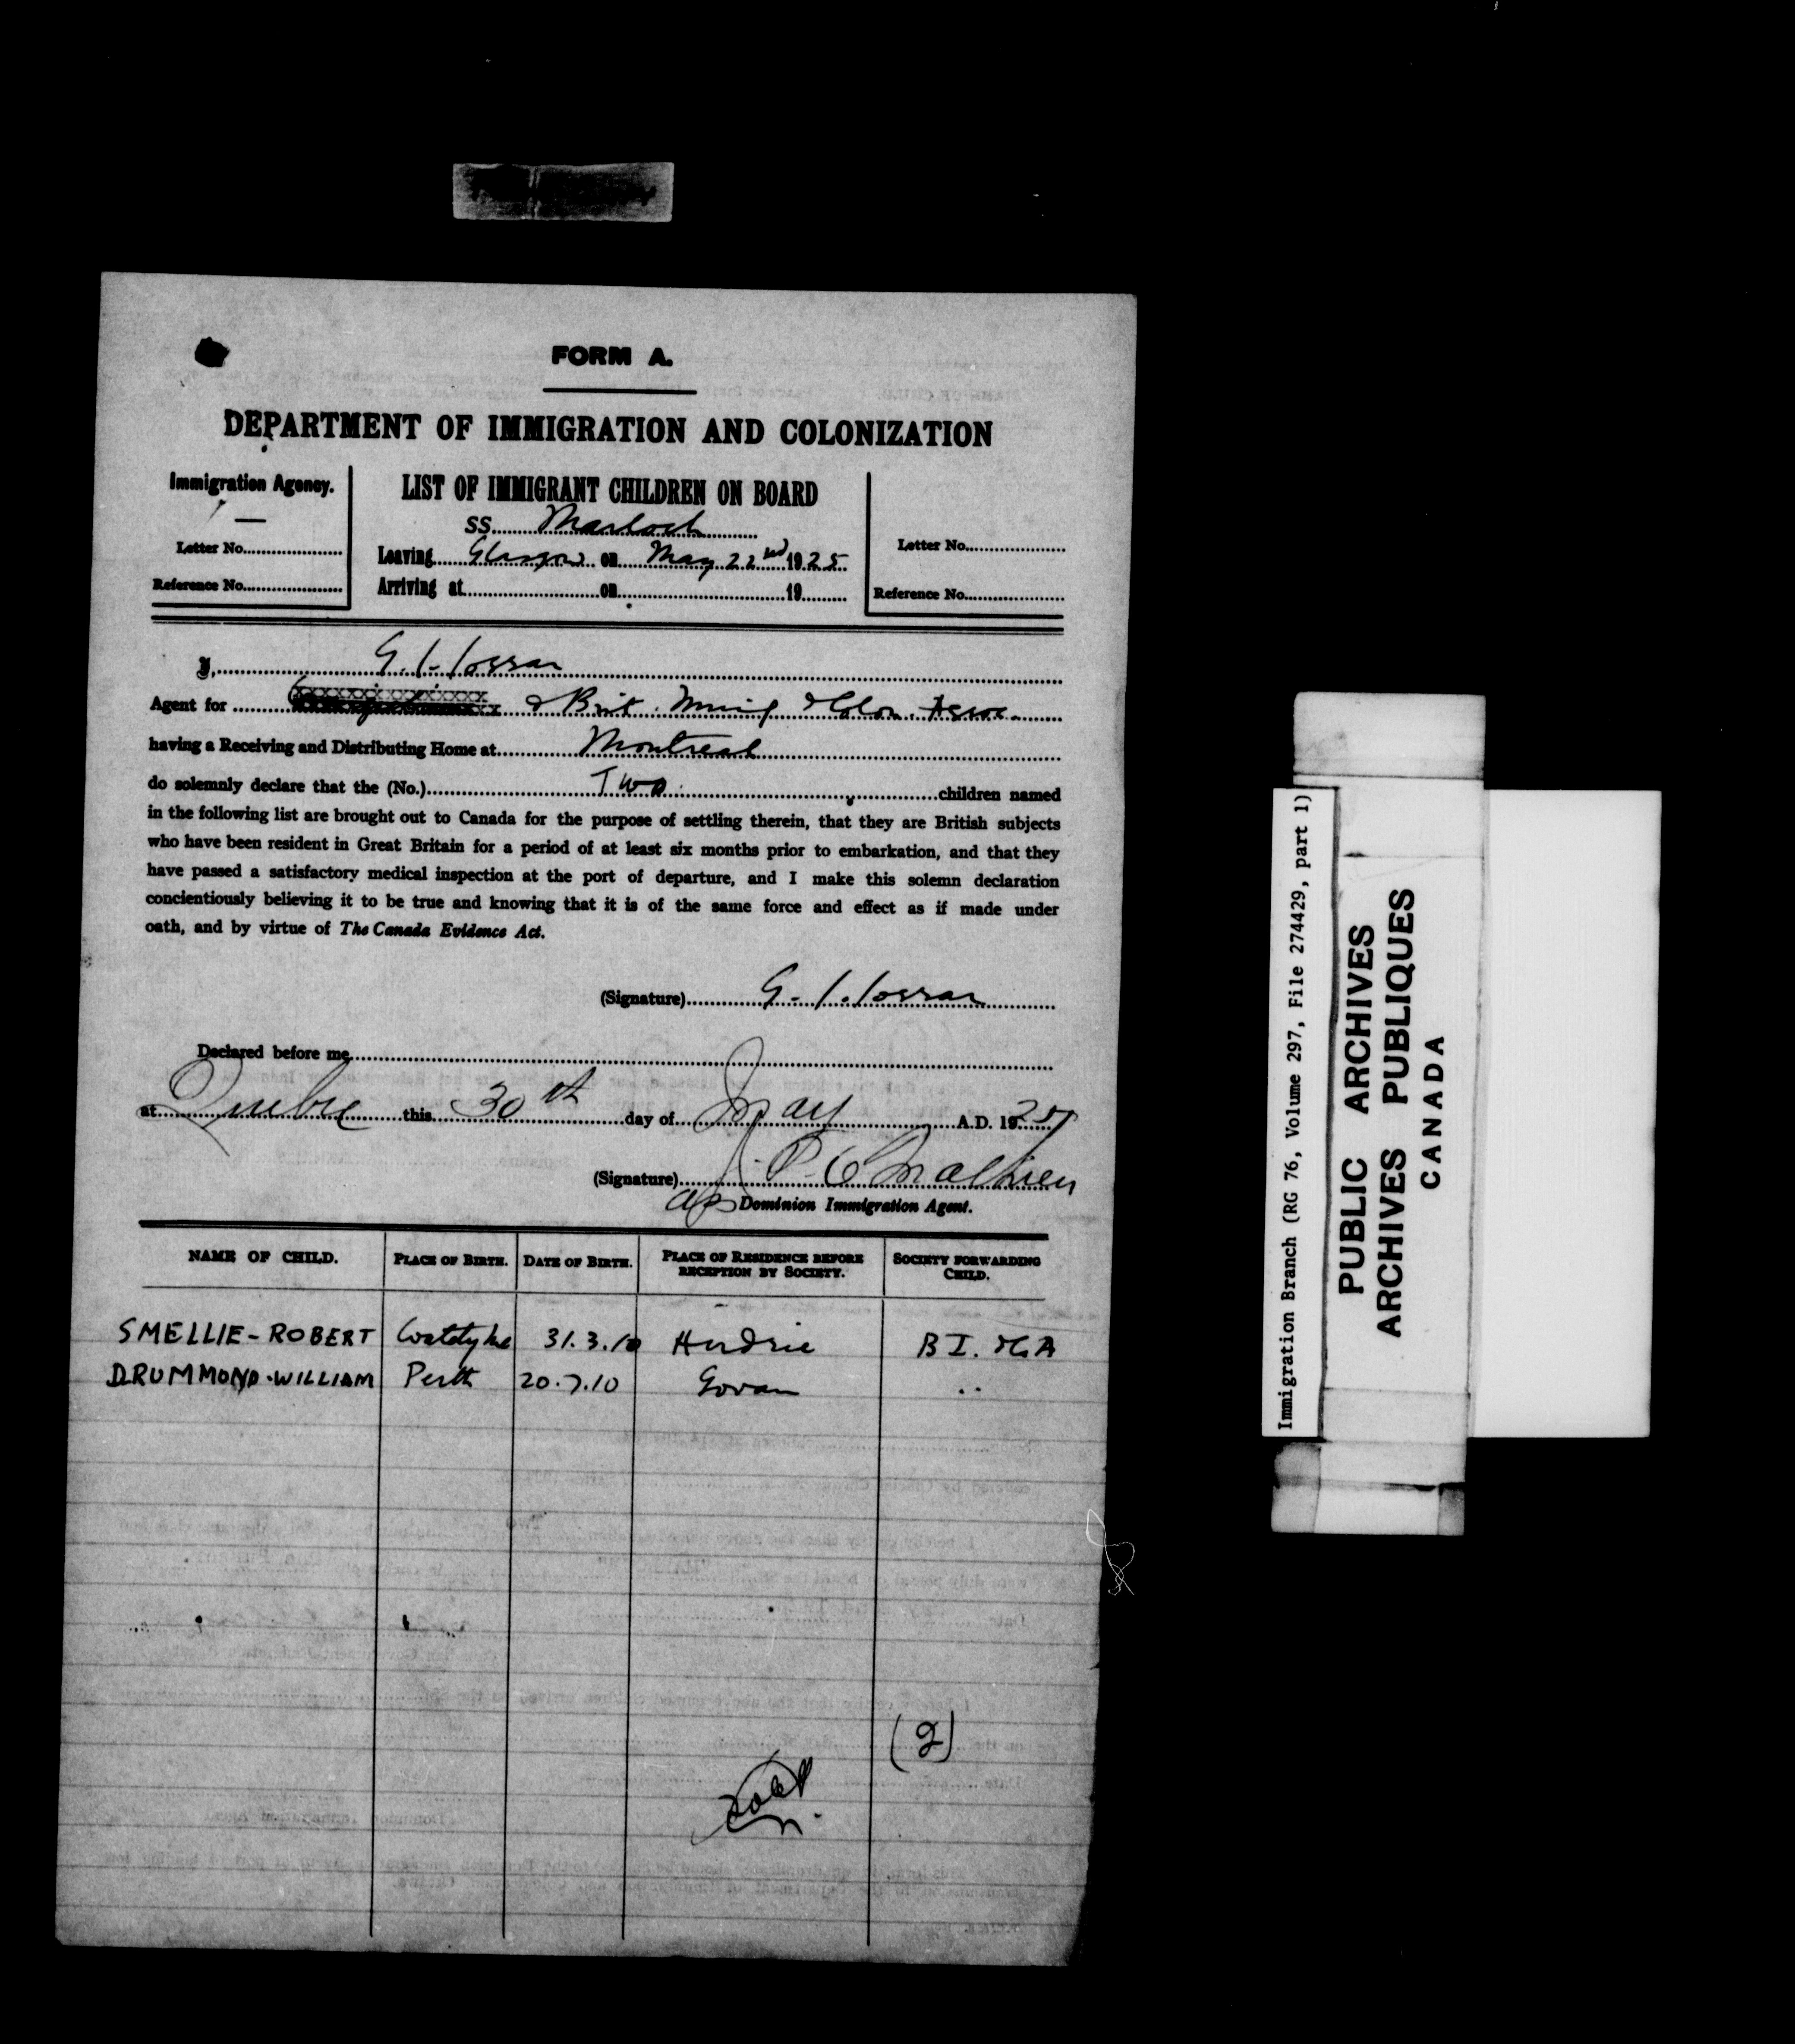 FORM A.
DEPARTMENT OF IMMIGRATION AND COLONIZATION
Immigration Agency.
Letter No.
Reference No.
LIST OF IMMIGRANT CHILDREN ON BOARD
SS. Marloch
Leaving Glasgow on May 22nd 1925
Arriving at on 19
Letter No.
Reference No.
I,
Agent for & Brit. Immig & Colon. Assoc.
having a Receiving and Distributing Home at Montreal
do solemnly declare that the (No.) Two children named
in the following list are brought out to Canada for the purpose of settling therein, that they are British subjects
who have been resident in Great Britain for a period of at least six months prior to embarkation, and that they
have passed a satisfactory medical inspection at the port of departure, and I make this solemn declaration
concientiously believing it to be true and knowing that it is of the same force and effect as if made under
oath, and by virtue of The Canada Evidence Act.
(Signature)
Declared before me
at Quebec this 30th day of May A.D. 1925
(Signature)
Dominion Immigration Agent.
NAME OF CHILD. PLACE OF BIRTH. DATE OF BIRTH. PLACE OF RESIDENCE BEFORE RECEPTION BY SOCIETY. SOCIETY FORWARDING CHILD.
SMELLIE - ROBERT 31.3.10 B I. & C A
DRUMMOND. WILLIAM Perth 20.7.10 Govan ..
(2)
Immigration Branch (RG 76, Volume 297, File 274429, part 1)
PUBLIC ARCHIVES
ARCHIVES PUBLIQUES
CANADA